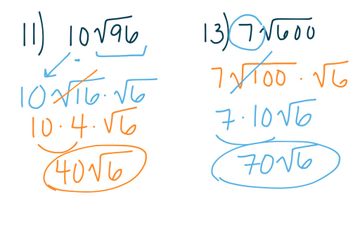 11) 10√96
10√16 · √6
10 · 4 · √6
40√6
13) 7√600
7√100 · √6
7 · 10√6
70√6